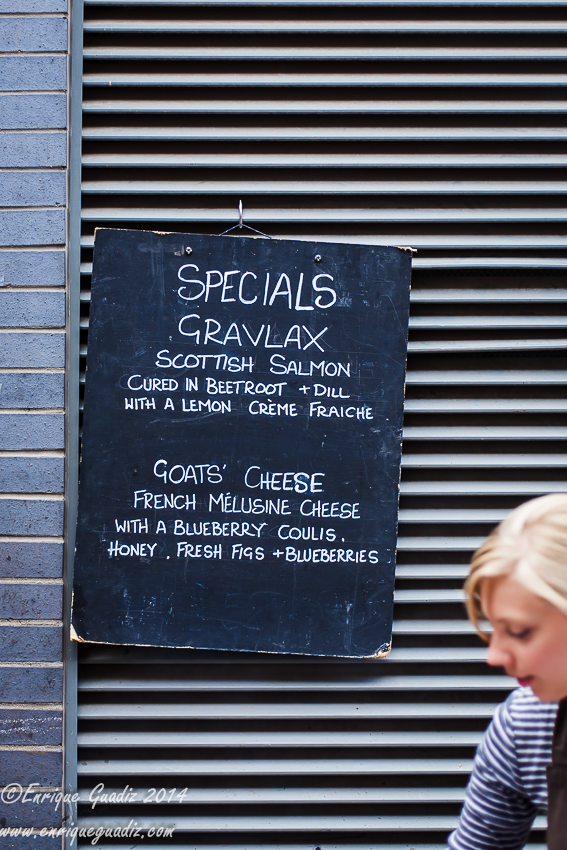 SPECIALS
GRAVLAX
SCOTTISH SALMON
CURED IN BEETROOT + DILL
WITH A LEMON CRÈME FRAICHE
GOATS' CHEESE
FRENCH MÉLUSINE CHEESE
WITH A BLUEBERRY COULIS.
HONEY, FRESH FIGS + BLUEBERRIES
©Enrique Guadiz 2014
www.enriqueguadiz.com